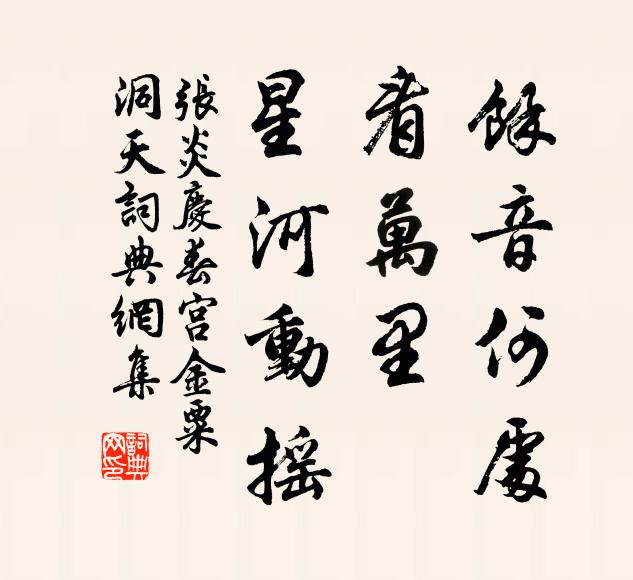 餘音何處
看萬里
星河動搖
張炎慶春宮金粟
洞天詞典網集
詞典
网印